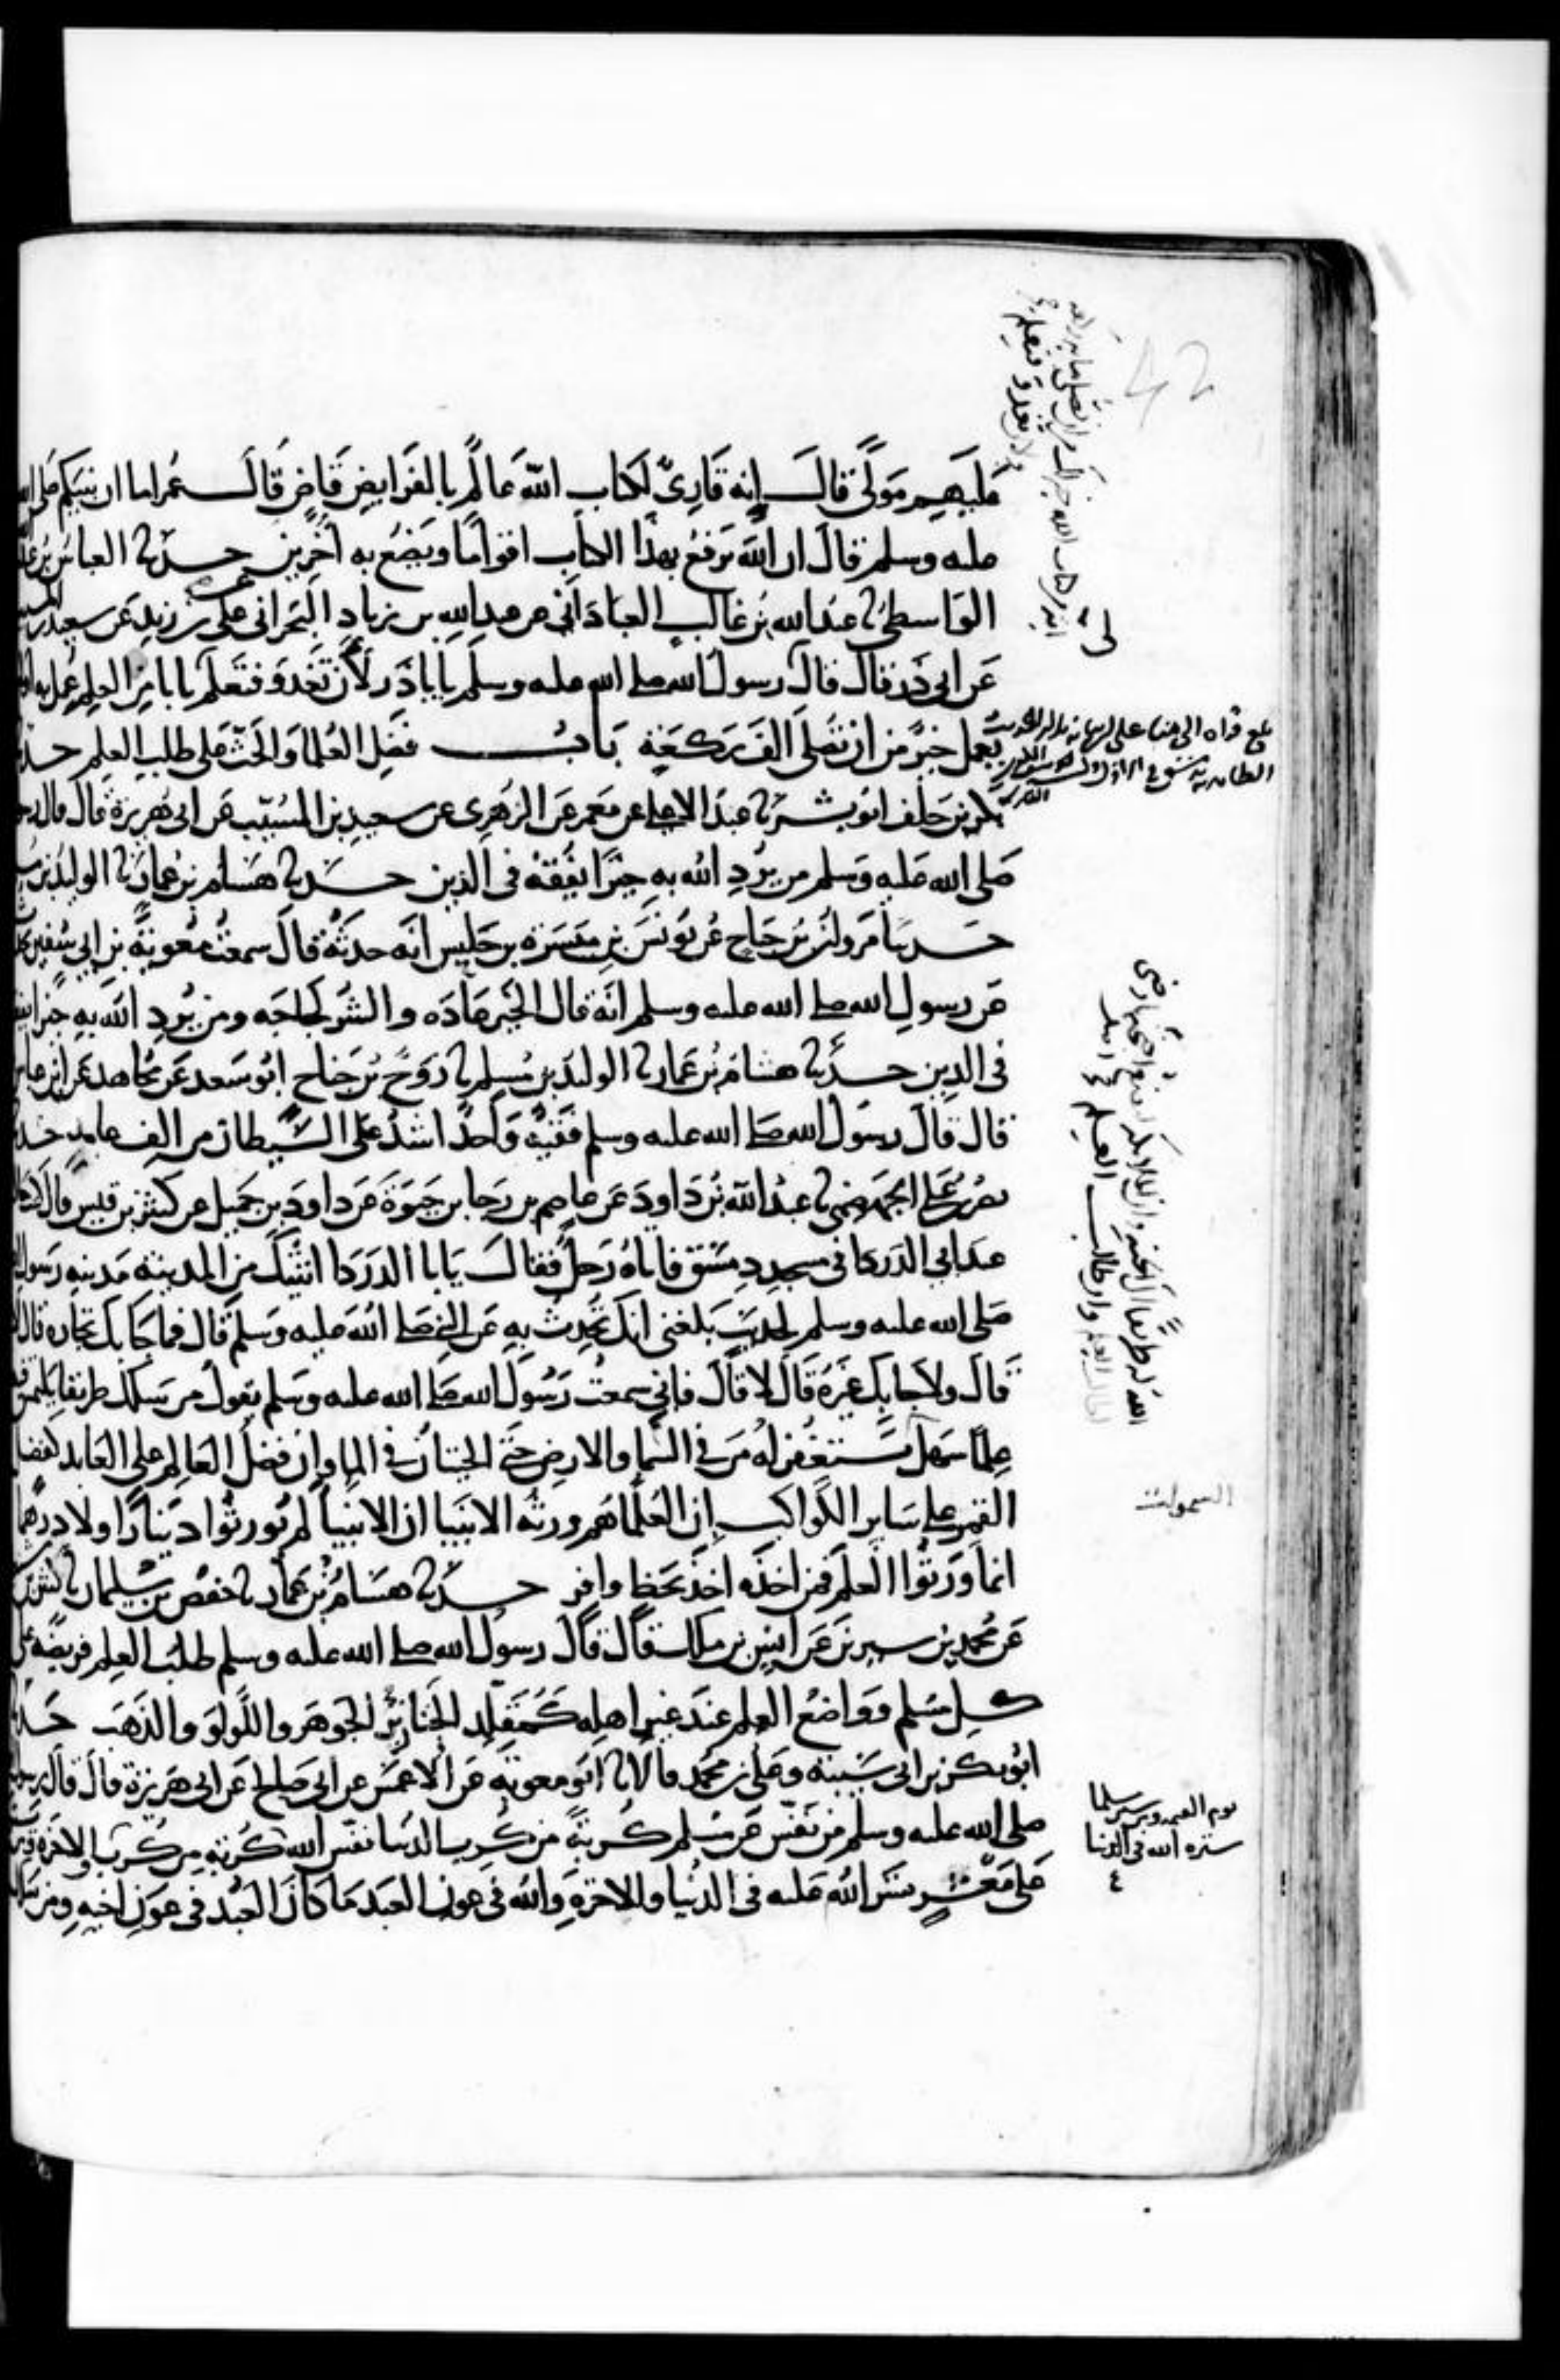 عليهم مولى قال إنه قارئ لكتاب الله عالم بالفرايض قاض قال عمر اما ان نبيكم صلى الله
عليه وسلم قال ان الله يرفع بهذا الكتاب اقواما ويضع به آخرين حدثنا العباس بن عبد
الواسطي ثنا عبد الله بن غالب العباداني عن عبد الله بن زياد البحراني عن علي بن زيد عن سعيد بن المسيب
عن ابي ذر قال قال رسول الله صلى الله عليه وسلم يا با ذر لأن تغدو فتعلم بابا من العلم عمل به او
يعمل خير من ان تصلي الف ركعة باب فضل العلما والحث على طلب العلم حدثنا
بكر بن خلف ابو بشر ثنا عبد الاعلى عن معمر عن الزهري عن سعيد بن المسيب عن ابي هريرة قال قال رسو
صلى الله عليه وسلم من يرد الله به خيرا يفقهه في الدين حدثنا هشام بن عمار ثنا الوليد بن مس
حدثنا مروان بن جناح عن يونس بن ميسرة بن حلبس انه حدثه قال سمعت معوية بن ابي سفين يحد
عن رسول الله صلى الله عليه وسلم انه قال الخير عادة والشر لجاجه ومن يرد الله به خيرا يفقهه
في الدين حدثنا هشام بن عمار ثنا الوليد بن مسلم ثنا روح بن جناح ابو سعد عن مجاهد عن ابن عباس
قال قال رسول الله صلى الله عليه وسلم فقيه واحد اشد على الشيطان من الف عابد حدثنا
نصر بن علي الجهضمي ثنا عبد الله بن داود عن عاصم بن رجا بن حيوة عن داود بن جميل عن كثير بن قيس قال كنت جال
عند ابي الدردا في مسجد دمشق فاتاه رجل فقال يا با الدردا اتيتك من المدينة مدينة رسول
صلى الله عليه وسلم لحديث بلغني انك تحدث به عن النبي صلى الله عليه وسلم قال فما جا بك تجارة قال لا
قال ولا جا بك غيره قال لا قال فاني سمعت رسول الله صلى الله عليه وسلم يقول من سلك طريقا يلتمس فيه
علما سهل يستغفر له من في السما والارض حتى الحيتان في الما وان فضل العالم على العابد كفضل
القمر على ساير الكواكب إن العلما هم ورثة الانبيا ان الانبيا لم يورثوا دينارا ولا درهما
انما ورثوا العلم فمن اخذه اخذ بحظ وافر حدثنا هشام بن عمار ثنا حفص بن سليمان ثنا كثير بن
عن محمد بن سيرين عن انس بن ملك قال قال رسول الله صلى الله عليه وسلم طلب العلم فريضة على
كل مسلم وواضع العلم عند غير اهله كمقلد الخنازير الجوهر واللولو والذهب حدثنا
ابو بكر بن ابي شيبة وعلي بن محمد قالا ثنا ابو معوية عن الاعمش عن ابي صالح عن ابي هريرة قال قال رسول
صلى الله عليه وسلم من نفس عن مسلم كربة من كرب الدنيا نفس الله كربة من كرب الاخرة ومن
على معسر يسر الله عليه في الدنيا والاخرة والله في عون العبد ما كان العبد في عون اخيه ومن سلك
اية من كتاب الله خير لك من ان تصلي ماية ركعة
ولان تغدو فتعلم
بلغ قراه الى هنا على
الله له طريقا الى الجنة وان الملايكة لتضع اجنحتها رضى
لطالب العلم وان طالب العلم
السموات
يوم القيمه ومن ستر مسلما
ستره الله في الدنيا
42